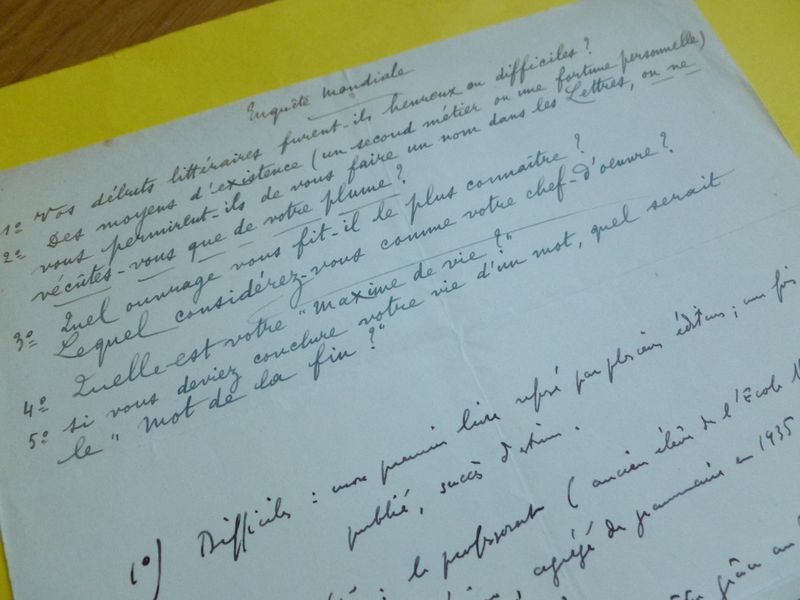 Enquête Mondiale
1º Vos débuts littéraires furent-ils heureux ou difficiles ?
2º Des moyens d'existence (un second métier ou une fortune personnelle)
vous permirent-ils de vous faire un nom dans les Lettres, ou ne
vécûtes-vous que de votre plume ?
3º Quel ouvrage vous fit-il le plus connaître ?
Lequel considérez-vous comme votre chef-d'oeuvre ?
4º Quelle-est votre "maxime de vie ?"
5º Si vous deviez conclure votre vie d'un mot, quel serait
le "mot de la fin ?"
1º) Difficiles : mon premier livre refusé par plusieurs éditeurs ; une fois
publié, succès d'estime.
: le professorat (ancien élève de l'Ecole
agrégé de grammaire en 1935
grâce au